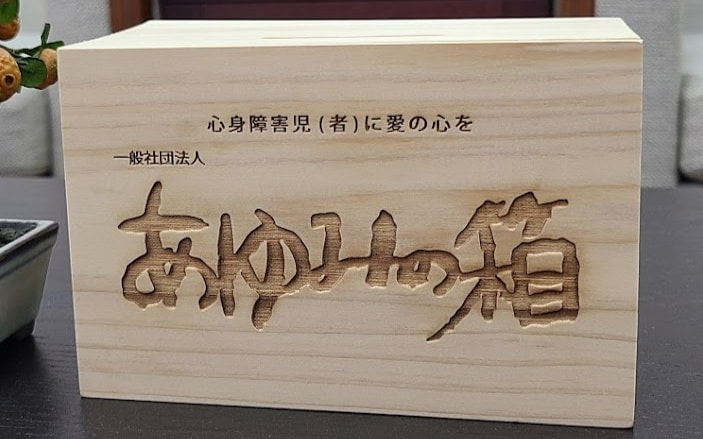 心身障害児(者)に愛の心を
一般社団法人
あゆみの箱